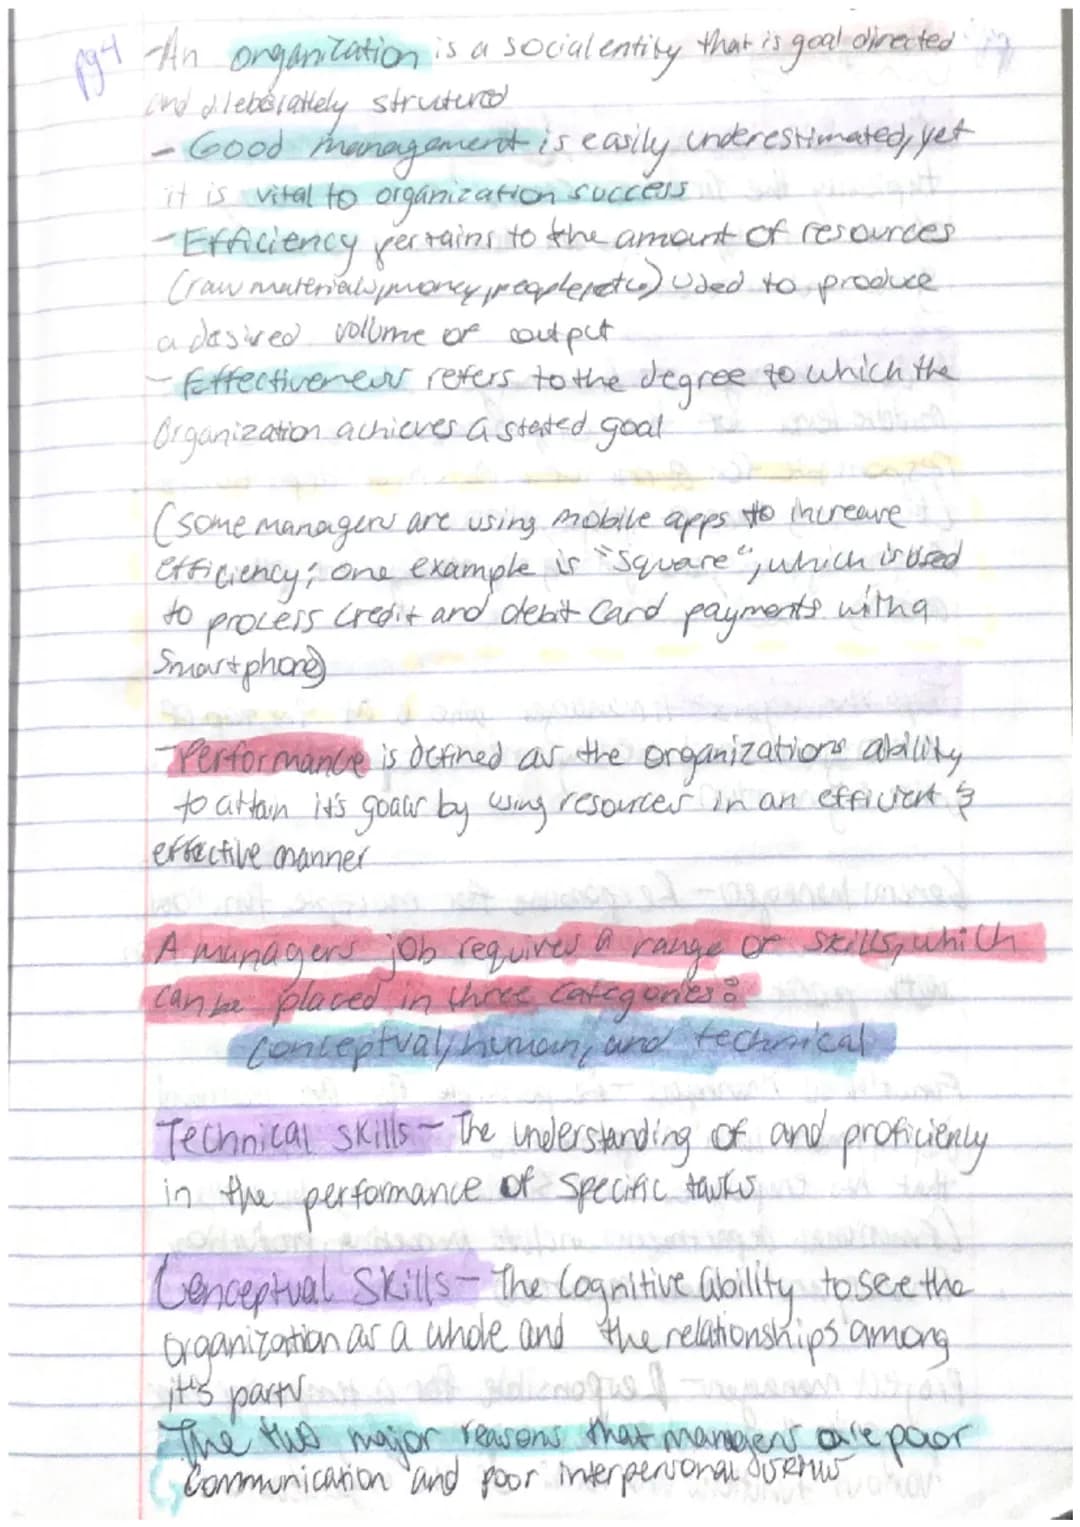 pg4 -An organization is a social entity that is goal directed
and deleberately strutured
- Good management is easily underestimated, yet
it is vital to organization success
- Efficiency pertains to the amount of resources
(raw materials, money, people, etc) used to produce
a desired volume of output
- Effectiveness refers to the degree to which the
Organization achieves a stated goal
(some managers are using mobile apps to increase
efficiency; one example is "Square", which is used
to process credit and debit card payments with a
Smartphone)
-Performance is defined as the organizations ability
to attain it's goals by using resources in an efficient &
effective manner
A managers job requires a range of skills, which
can be placed in three categories:
Conceptual, human, and technical
Technical skills - The understanding of and proficienly
in the performance of specific tasks
Conceptual Skills - The Cognitive ability to see the
organization as a whole and the relationships among
it's parts
The two major reasons that managers are poor
Communication and poor interpersonal